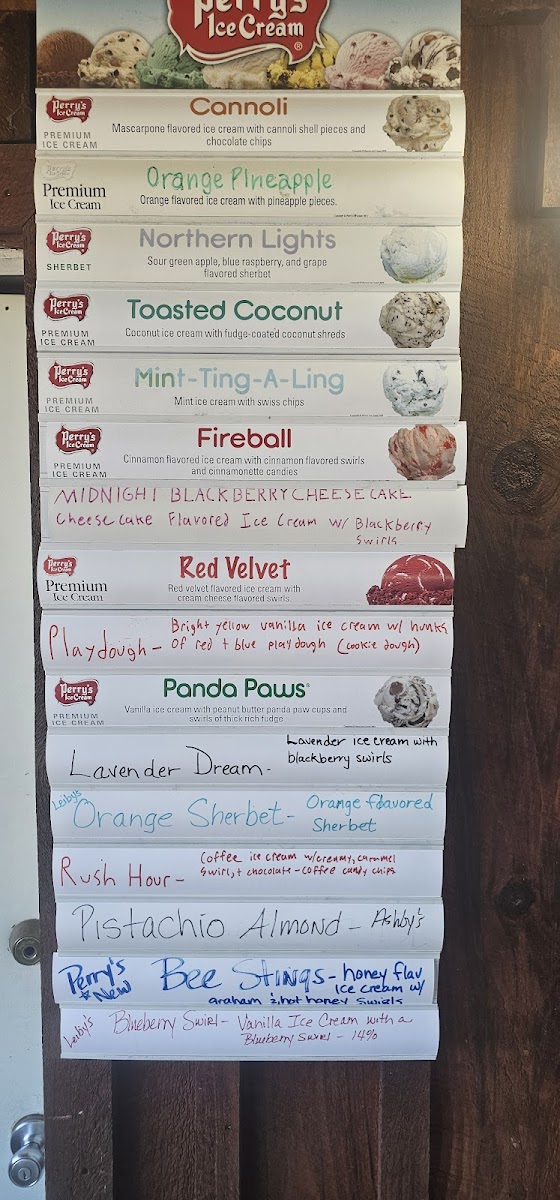 Perry's
Ice Cream®
Perry's
Ice Cream
PREMIUM
ICE CREAM
Cannoli
Mascarpone flavored ice cream with cannoli shell pieces and
chocolate chips
Premium
Ice Cream
Orange PIneapple
Orange flavored ice cream with pineapple pieces.
Perry's
Ice Cream
SHERBET
Northern Lights
Sour green apple, blue raspberry, and grape
flavored sherbet
Perry's
Ice Cream
PREMIUM
ICE CREAM
Toasted Coconut
Coconut ice cream with fudge-coated coconut shreds
Perry's
Ice Cream
PREMIUM
ICE CREAM
Mint-Ting-A-Ling
Mint ice cream with swiss chips
Perry's
Ice Cream
PREMIUM
ICE CREAM
Fireball
Cinnamon flavored ice cream with cinnamon flavored swirls
and cinnamonette candies
MIDNIGHT BLACKBERRY CHEESECAKE
Cheesecake Flavored Ice Cream w/ Blackberry
Swirls
Perry's
Ice Cream
Premium
Ice Cream
Red Velvet
Red velvet flavored ice cream with
cream cheese flavored swirls.
Playdough - Bright yellow vanilla ice cream w/ hunks
of red + blue playdough (cookie dough)
Perry's
Ice Cream
PREMIUM
ICE CREAM
Panda Paws®
Vanilla ice cream with peanut butter panda paw cups and
swirls of thick rich fudge
Lavender Dream - Lavender ice cream with
blackberry swirls
Leiby's
Orange Sherbet - Orange flavored
Sherbet
Rush Hour - Coffee ice cream w/creamy, caramel
swirl, + chocolate-coffee candy chips
Pistachio Almond - Ashby's
Perry's
*New
Bee Stings - honey flav
ice cream w/
graham & hot honey swirls
Leiby's
Blueberry Swirl - Vanilla Ice Cream with a
Blueberry Swirl - 14%